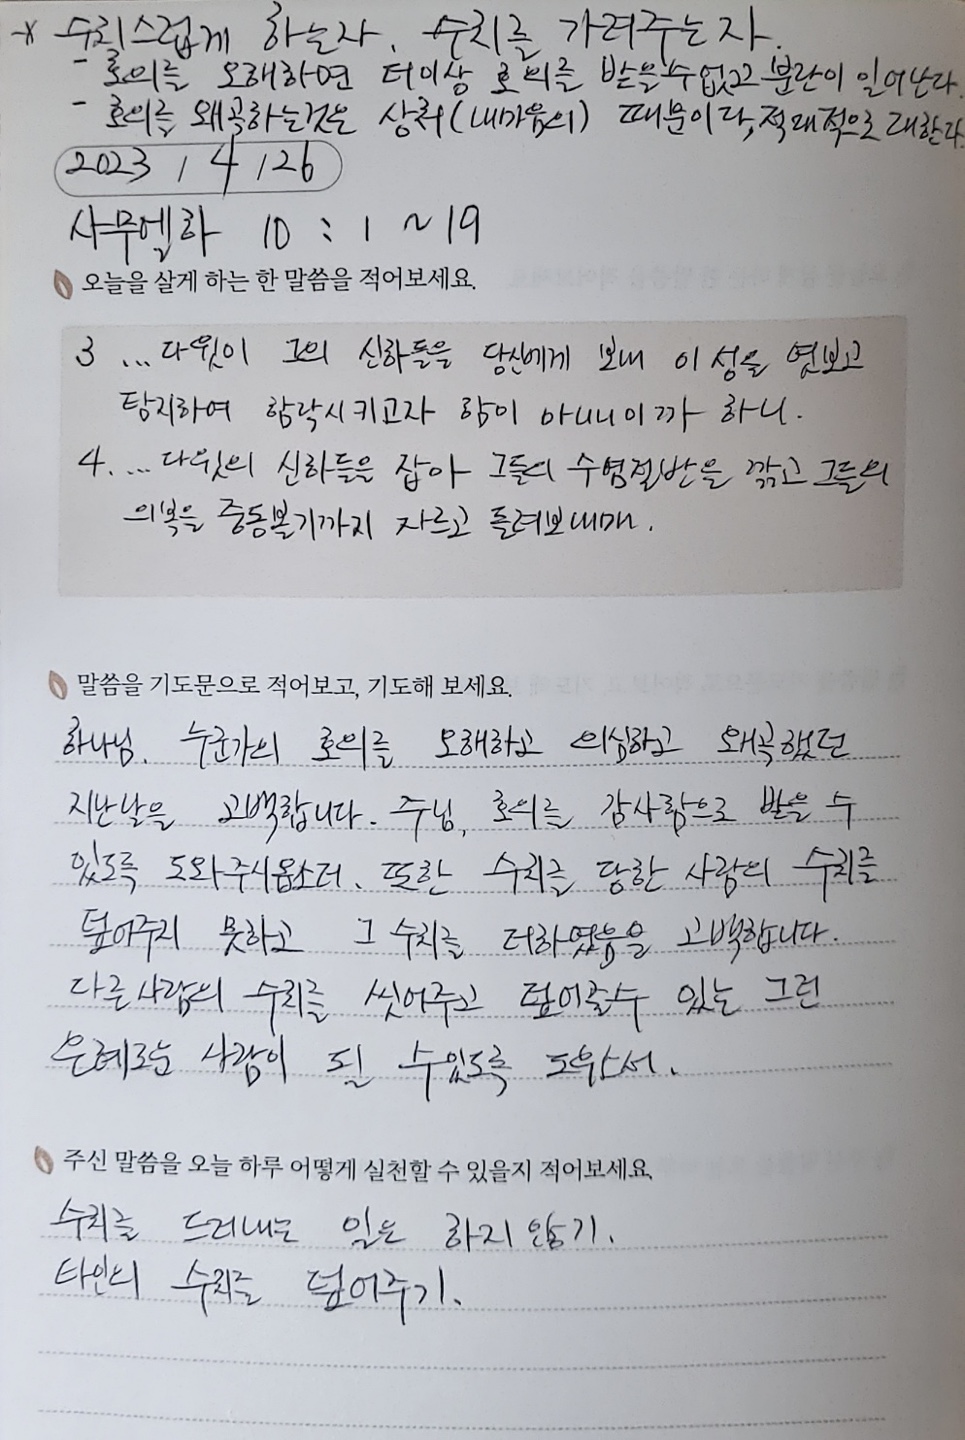 * 수치스럽게 하는자, 수치를 가려주는자.
- 호의를 오해하면 더이상 호의를 받을수없고 분란이 일어난다.
- 호의를 왜곡하는것은 상처(내마음의) 때문이다, 적대적으로 대한다.
2023 / 4 / 26
사무엘하 10 : 1 ~ 19
오늘을 살게 하는 한 말씀을 적어보세요.
3 ... 다윗이 그의 신하들을 당신에게 보내 이 성을 엿보고
탐지하여 함락시키고자 함이 아니니이까 하니.
4. ... 다윗의 신하들을 잡아 그들의 수염절반을 깎고 그들의
의복을 중동볼기까지 자르고 돌려보내매.
말씀을 기도문으로 적어보고, 기도해 보세요.
하나님. 누군가의 호의를 오해하고 의심하고 왜곡했던
지난날을 고백합니다. 주님, 호의를 감사함으로 받을 수
있도록 도와주시옵소서. 또한 수치를 당한 사람의 수치를
덮어주지 못하고 그 수치를 더하였음을 고백합니다.
다른사람의 수치를 씻어주고 덮어줄수 있는 그런
은혜로운 사람이 될 수있도록 도우소서.
주신 말씀을 오늘 하루 어떻게 실천할 수 있을지 적어보세요.
수치를 드러내는 일은 하지 않기.
타인의 수치를 덮어주기.